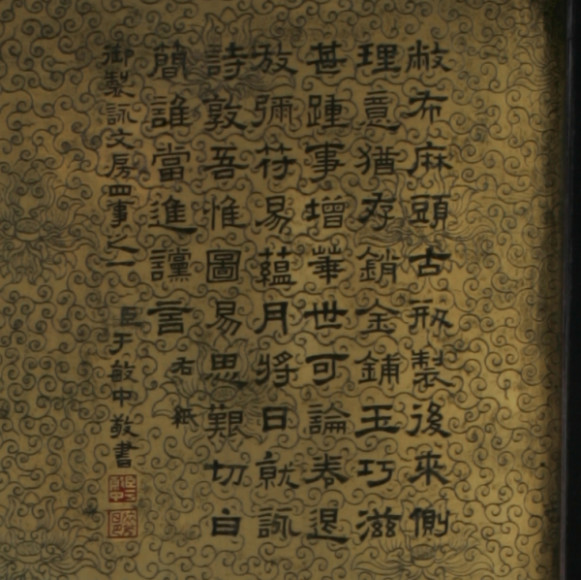 敝布麻頭古刱製後來側
理意猶存銷金鋪玉巧滋
甚踵事增華世可論卷退
放彌符易蘊月將日就詠
詩敦吾惟圖易思艱切白
簡誰當進讜言 右紙
御製詠文房四事之一 臣于敏中敬書